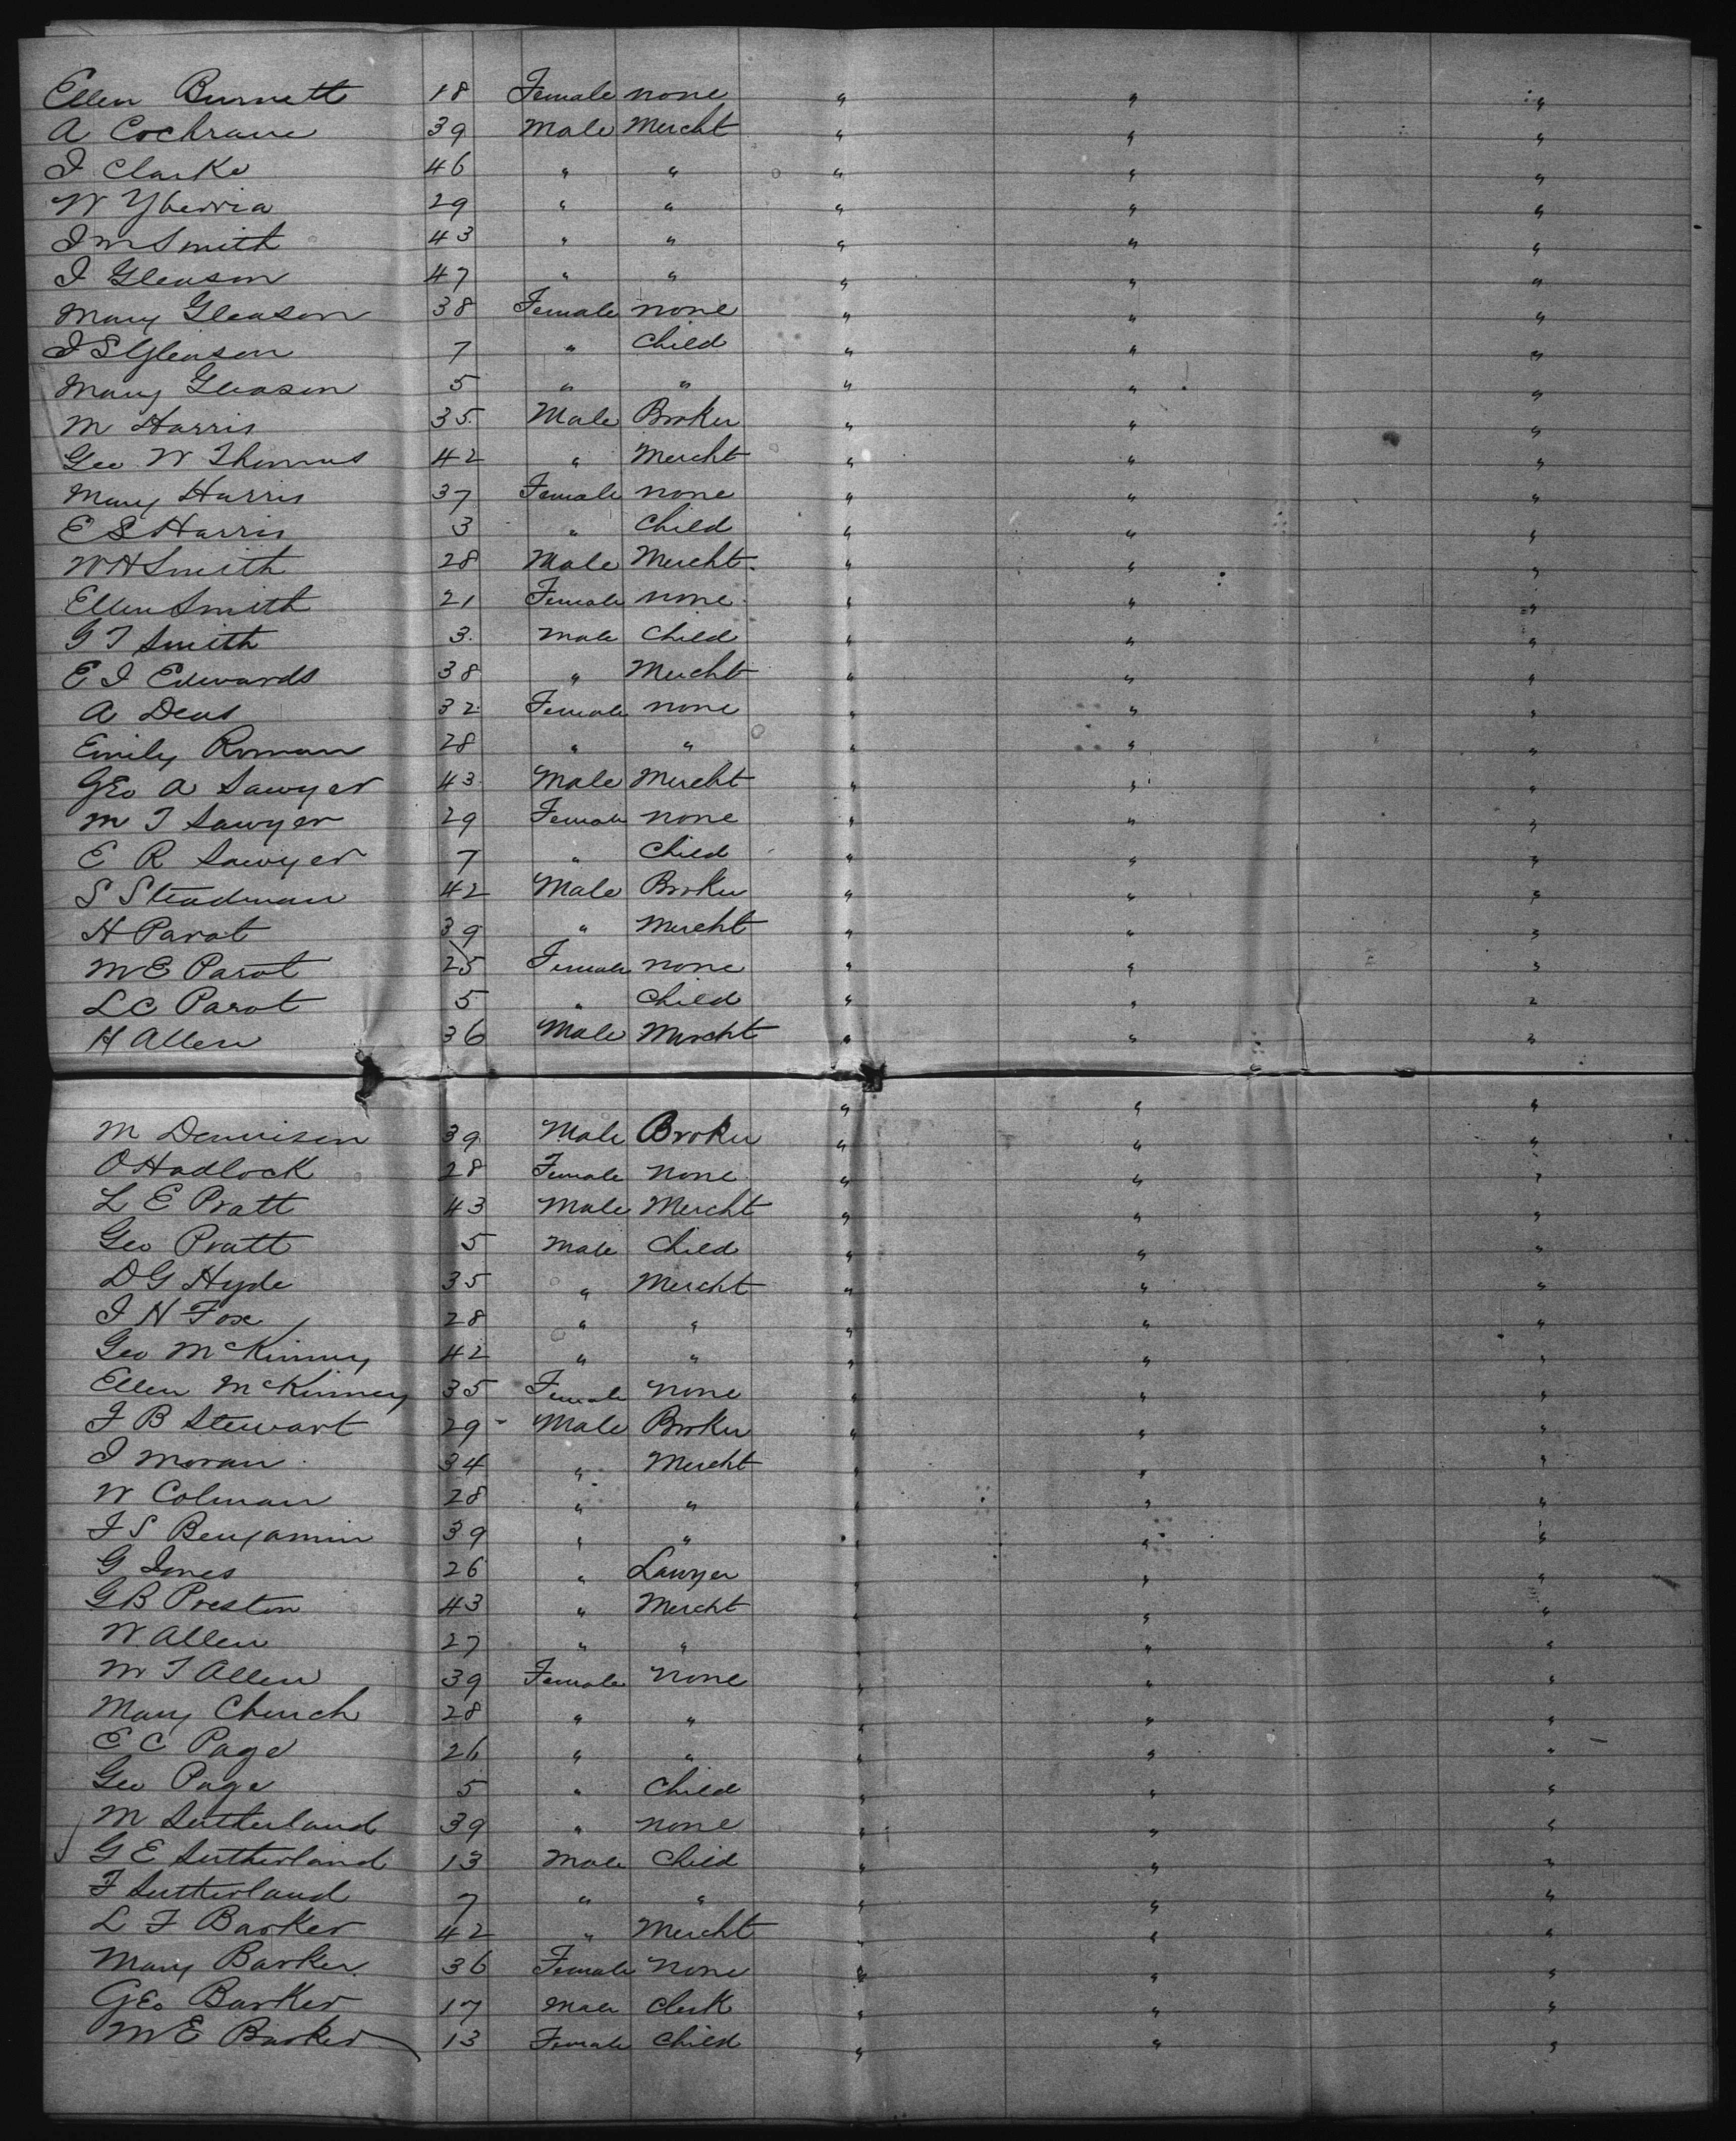 Ellen Burnett 18 Female none " " "
A Cochrane 39 Male Mercht " " "
I Clarke 46 " " " " "
W Yberria 29 " " " " "
I M Smith 43 " " " " "
I Gleason 47 " " " " "
Mary Gleason 38 Female none " " "
I S Gleason 7 " Child " " "
Mary Gleason 5 " " " " "
M Harris 35 Male Broker " " "
Geo W Thomas 42 " Mercht " " "
Mary Harris 37 Female none " " "
E S Harris 3 " Child " " "
W H Smith 28 Male Mercht " " "
Ellen Smith 21 Female none " " "
G T Smith 3 Male Child " " "
E I Edwards 38 " Mercht " " "
A Deas 32 Female none " " "
Emily Roman 28 " " " " "
Geo A Sawyer 43 Male Mercht " " "
M T Sawyer 29 Female none " " "
E R Sawyer 7 " Child " " "
S Steadman 42 Male Broker " " "
H Parot 39 " Mercht " " "
M E Parot 25 Female none " " "
L C Parot 5 " Child " " "
H Allen 36 Male Mercht " " "
" " "
M Dennison 39 Male Broker " " "
O Hadlock 28 Female none " " "
L E Pratt 43 Male Mercht " " "
Geo Pratt 5 Male Child " " "
D G Hyde 35 " Mercht " " "
I H Fox 28 " " " " "
Geo McKinney 42 " " " " "
Ellen McKinney 35 Female none " " "
F B Stewart 29 Male Broker " " "
I Moran 34 " Mercht " " "
W Colman 28 " " " " "
I S Benjamin 39 " " " " "
G Jones 26 " Lawyer " " "
G B Preston 43 " Mercht " " "
W Allen 27 " " " " "
M T Allen 39 Female none " " "
Mary Church 28 " " " " "
E C Page 26 " " " " "
Geo Page 5 " Child " " "
M Sutherland 39 " none " " "
G E Sutherland 13 Male Child " " "
F Sutherland 7 " " " " "
L F Barker 42 " Mercht " " "
Mary Barker 36 Female none " " "
Geo Barker 17 Male Clerk " " "
M E Barker 13 Female Child " " "